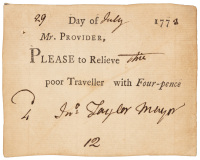 29 Day of July 1772
Mr. PROVIDER,
PLEASE to Relieve this
poor Traveller with Four-pence
Jn.o Taylor Mayor
12